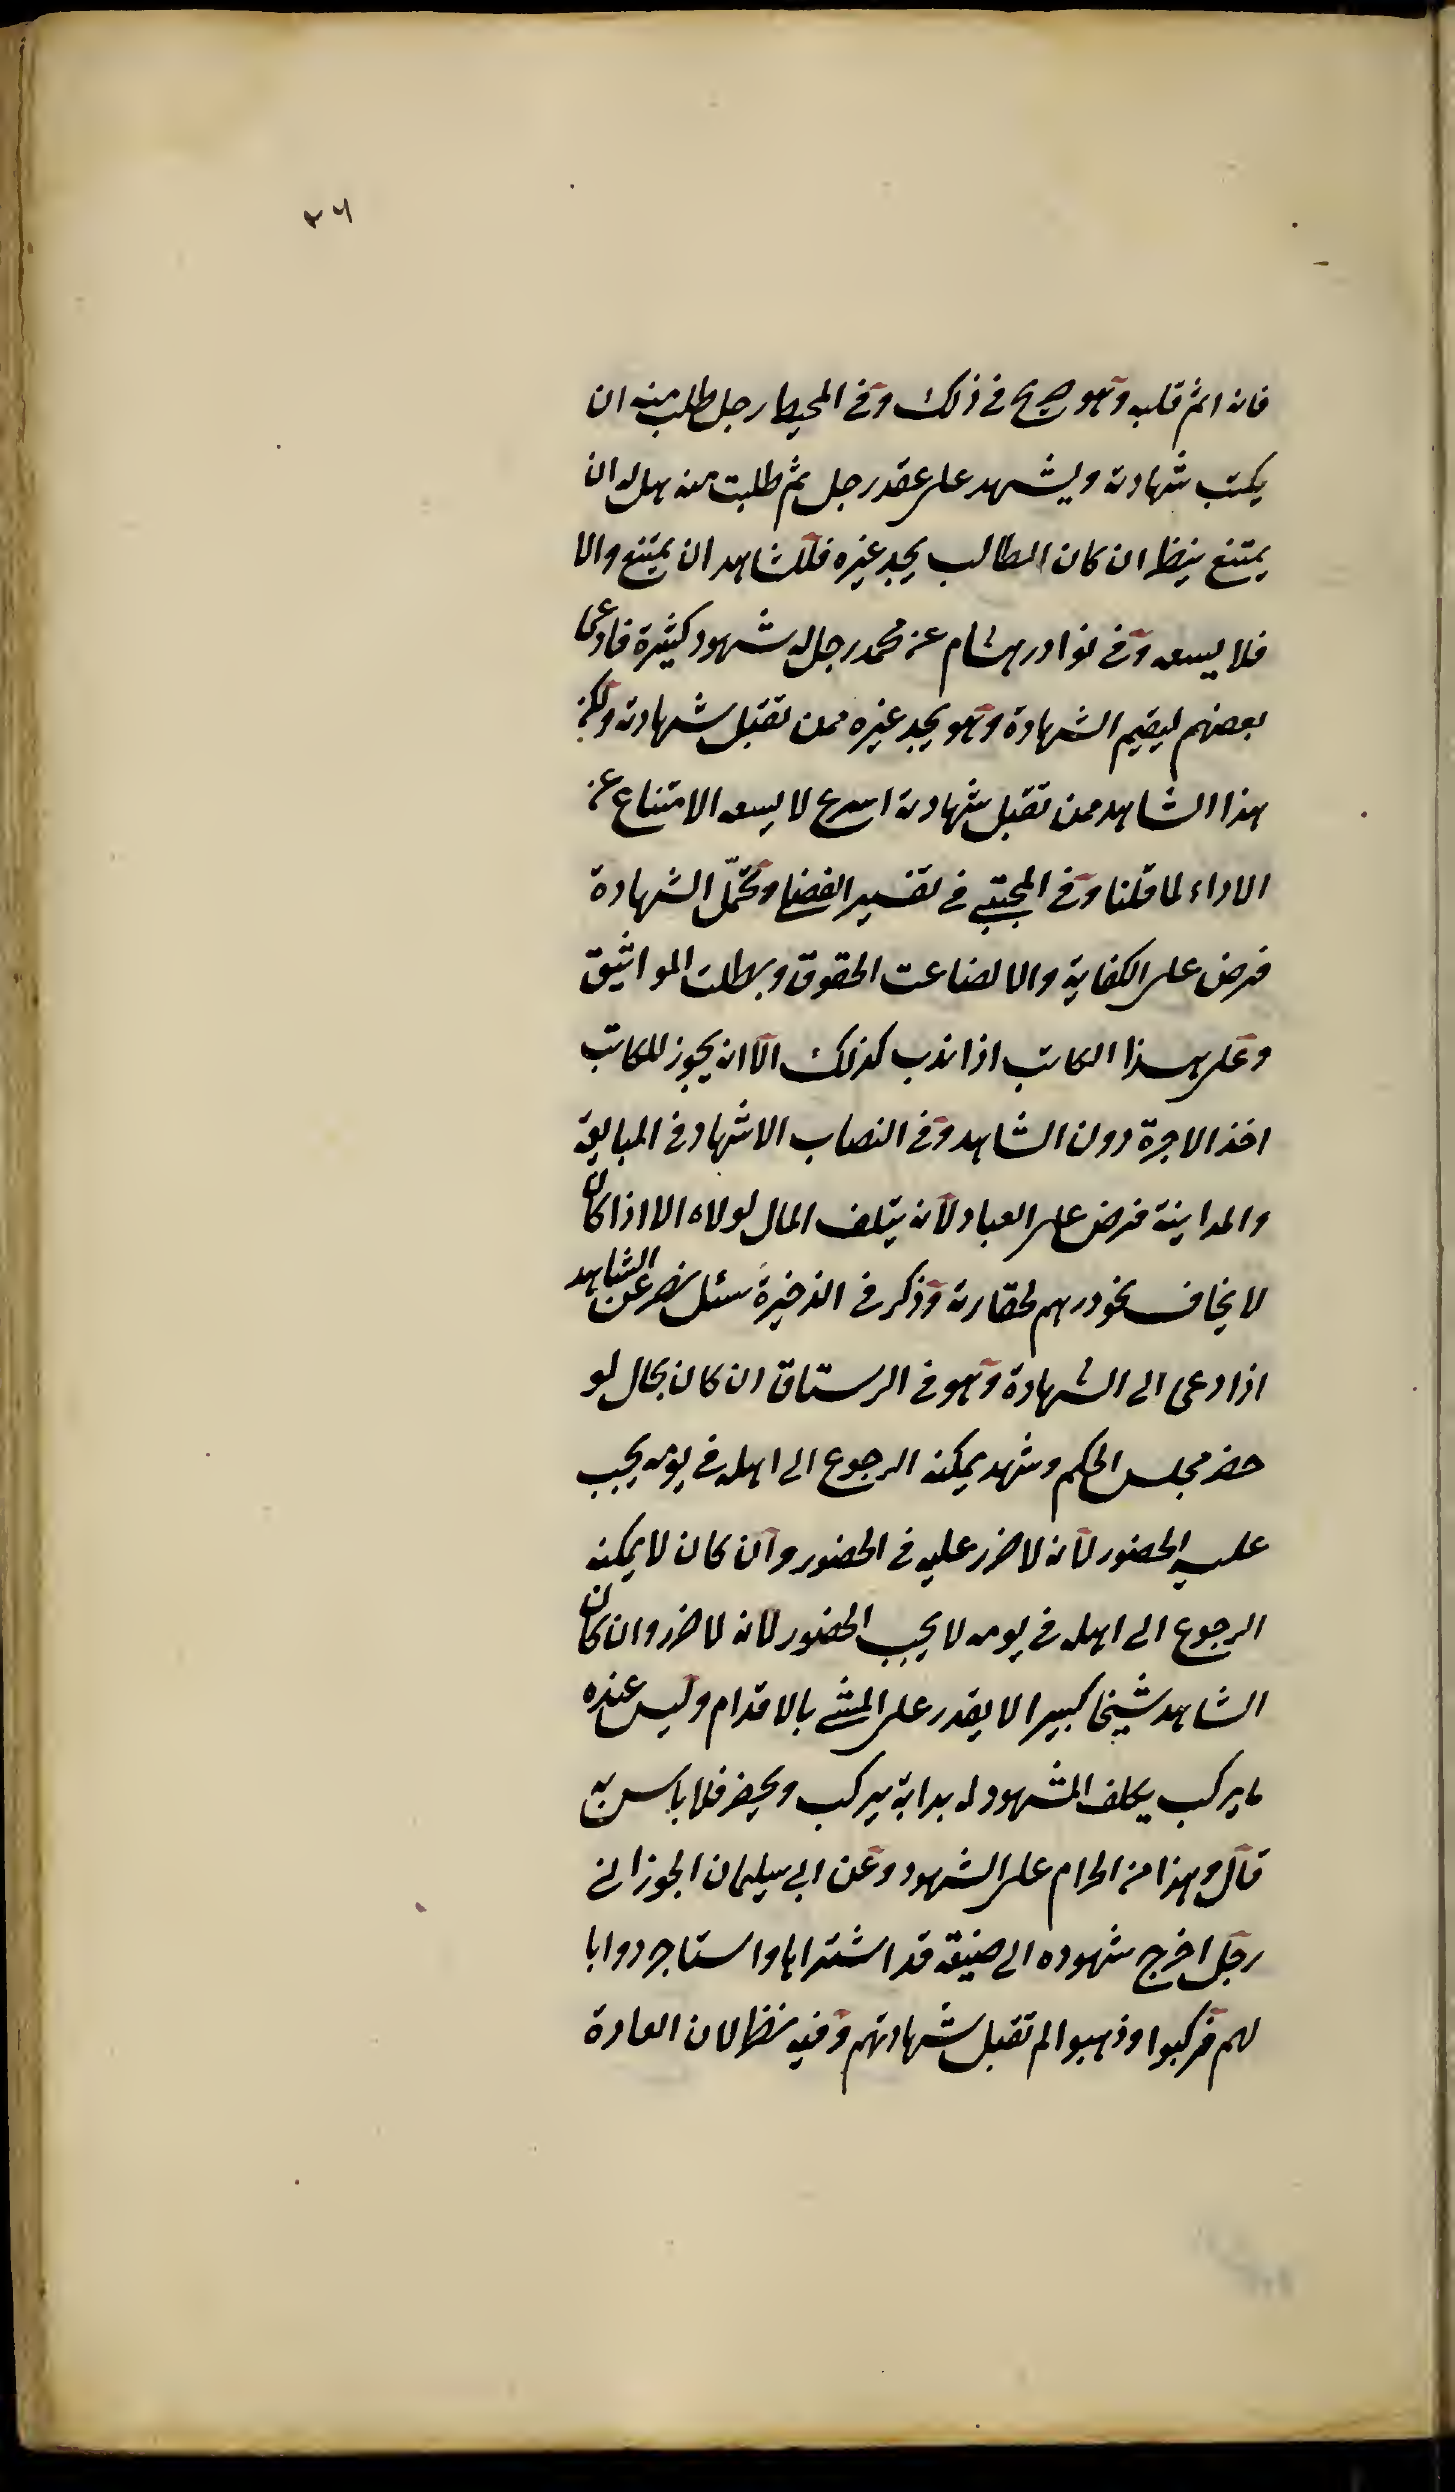 ٢٦
فانه اثم قلبه وهو صريح في ذلك وفي المحيط رجل طلب منه ان
يكتب شهادته ويشهد على عقد رجل ثم طلبت منه هل له ان
يمتنع ينظر ان كان الطالب يجد غيره فللشاهد ان يمتنع والا
فلا يسعه وفي نوادر هشام عن محمد رجل له شهود كثيرة فادعى
بعضهم ليقيم الشهادة وهو يجد غيره ممن تقبل شهادته ولكن
هذا الشاهد ممن تقبل شهادته اسرع لا يسعه الامتناع عن
الاداء لما قلنا وفي المجتبى في تفسير الفضلي وتحمّل الشهادة
فرض على الكفاية والا لضاعت الحقوق وبطلت المواثيق
وعلى هذا الكاتب اذا ندب كذلك الا انه يجوز للكاتب
اخذ الاجرة دون الشاهد وفي النصاب الاشهاد في المبايعة
والمداينة فرض على العباد لانه يتلف المال لولاه الا اذا كان
لا يخاف نحو درهم لحقارته وذكر في الذخيرة سئل نصر عن الشاهد
اذا دعى الى الشهادة وهو في الرستاق ان كان بحال لو
حضر مجلس الحكم وشهد يمكنه الرجوع الى اهله في يومه يجب
عليه الحضور لانه لا ضرر عليه في الحضور وان كان لا يمكنه
الرجوع الى اهله في يومه لا يجب الحضور لانه لا ضرر وان كان
الشاهد شيخا كبيرا لا يقدر على المشي بالاقدام وليس عنده
ما يركب يكلف المشهود له بدابة يركب ويحضر فلا باس به
قال وهذا من اكرام على الشهود وعن ابي سليمان الجوزاني
رجل اخرج شهوده الى ضيعة قد اشتراها واستاجر دوابا
لهم فركبوا وذهبوا لم تقبل شهادتهم وفيه نظر لان العادة